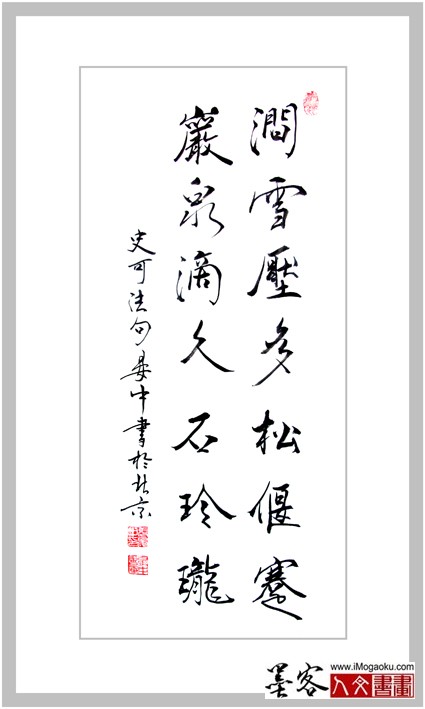 澗雪壓多松偃蹇
巖泉滴久石玲瓏
史可法句晏中書於北京
墨客
www.iMogaoku.com
人文書畫